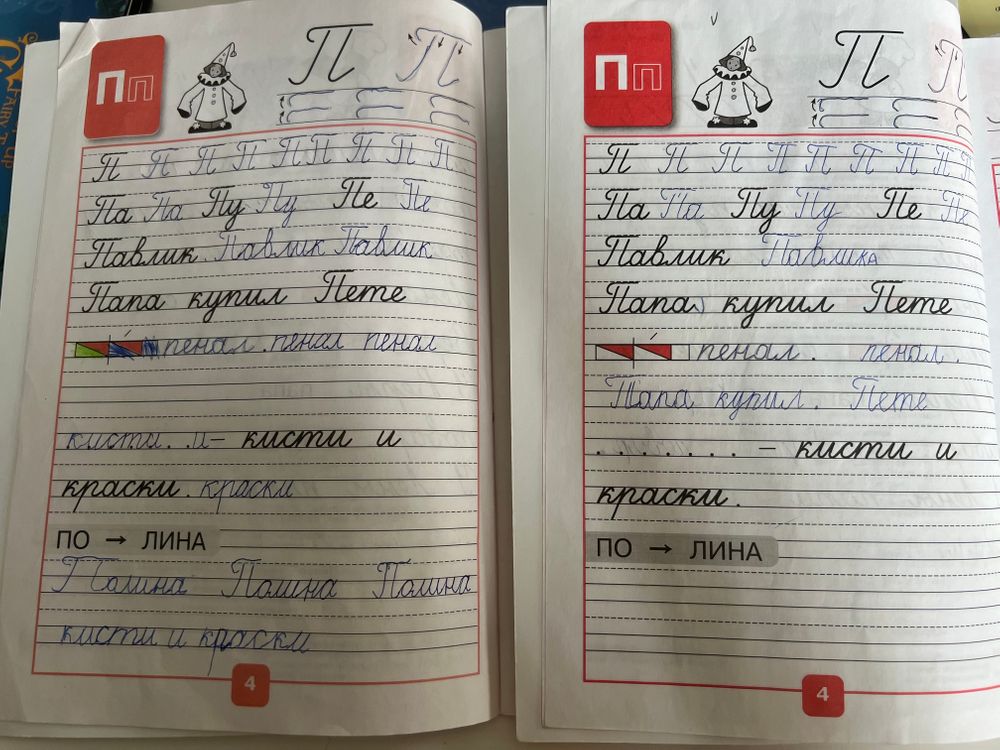 Пп
П П
П П П П П П П П П
Па Па Пу Пу Пе Пе
Павлик Павлик Павлик
Папа купил Пете
пенал. пенал пенал
кисти. и - кисти и
краски. краски
ПО → ЛИНА
Полина Полина Полина
кисти и краски
4
Пп
П П
П П П П П П П П П
Па Па Пу Пу Пе Пе
Павлик Павлика
Папа купил Пете
пенал. пенал.
Папа купил. Пете
. . . . . . . - кисти и
краски.
ПО → ЛИНА
4
FAIRY T